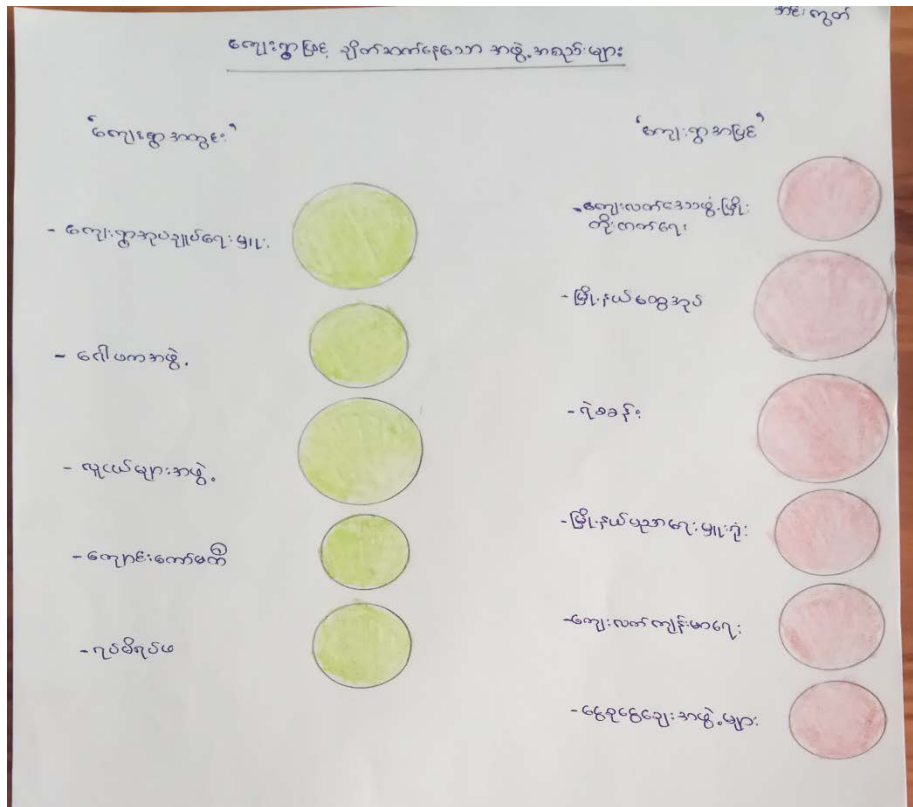 အင်းကွတ်
ကျေးရွာဖြင့် ချိတ်ဆက်နေသော အဖွဲ့အစည်းများ
'ကျေးရွာအတွင်း'
- ကျေးရွာအုပ်ချုပ်ရေးမှူး
- ဂေါပကအဖွဲ့
- လူငယ်များအဖွဲ့
- ကျောင်းကော်မတီ
- ရပ်မိရပ်ဖ
'ကျေးရွာအပြင်'
- ကျေးလက်ဒေသဖွံ့ဖြိုး
တိုးတက်ရေး
- မြို့နယ်ထွေအုပ်
- ရဲစခန်း
- မြို့နယ်ပညာရေးမှူးရုံး
- ကျေးလက်ကျန်းမာရေး
- ငွေစုငွေချေးအဖွဲ့များ